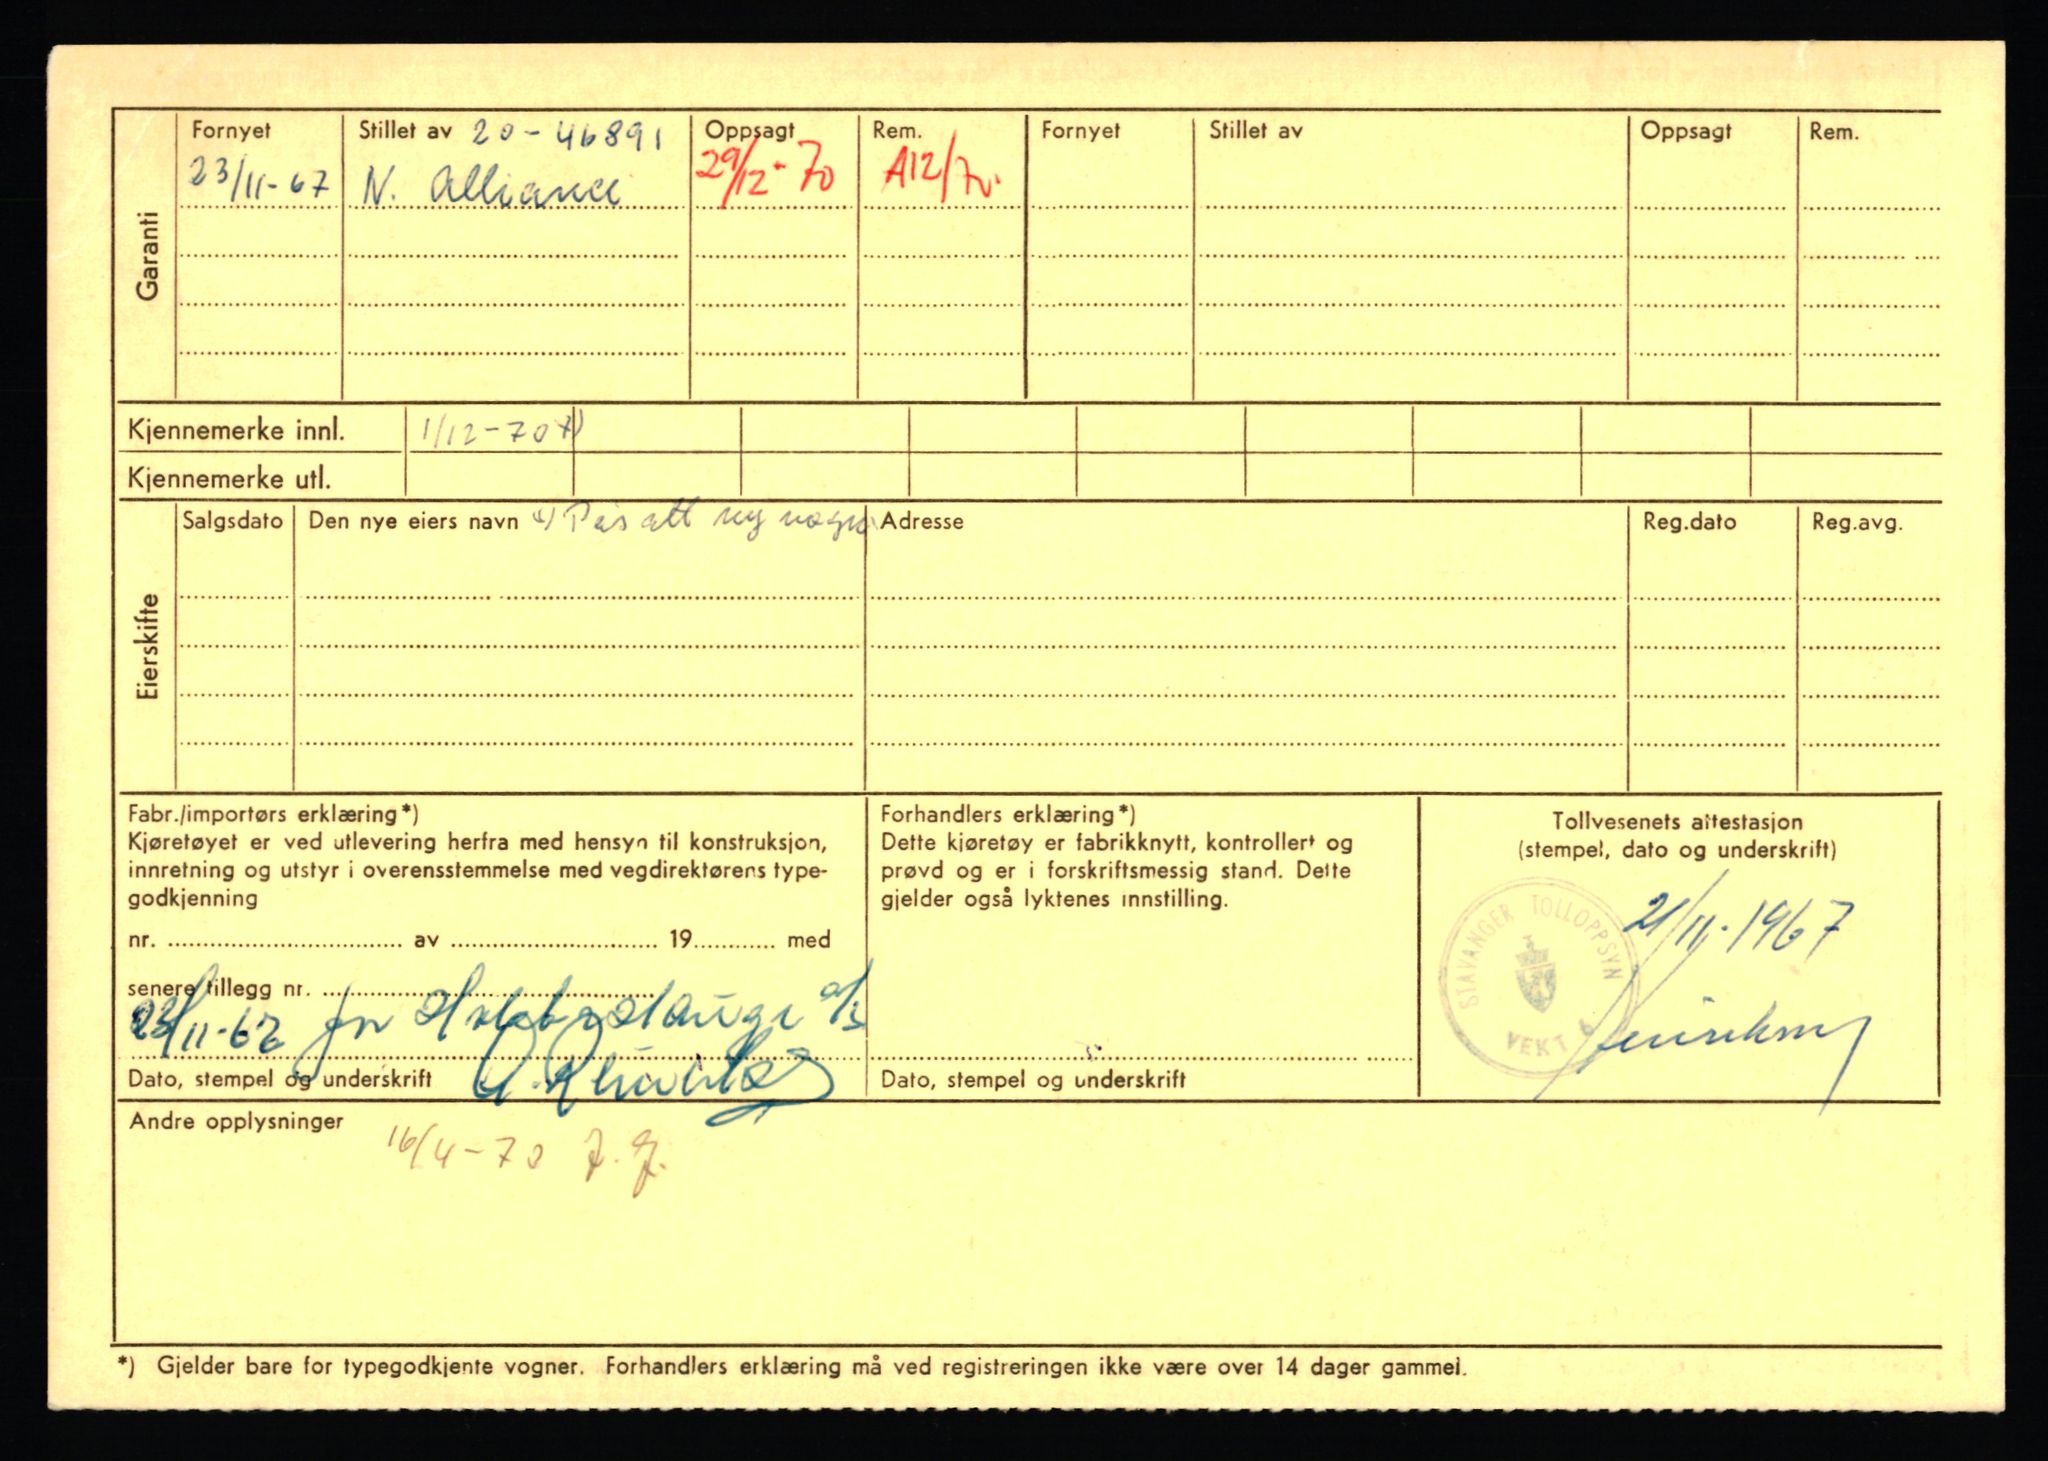 Garanti
Fornyet Stillet av 20-46891 Oppsagt Rem. Fornyet Stillet av Oppsagt Rem.
23/11-67 N. Alliance 29/12-70 A12/70.
Kjennemerke innl. 1/12-70 *)
Kjennemerke utl.
Eierskifte
Salgsdato Den nye eiers navn *) Påsatt ny vogn Adresse Reg.dato Reg.avg.
Fabr./importørs erklæring*)
Kjøretøyet er ved utlevering herfra med hensyn til konstruksjon,
innretning og utstyr i overensstemmelse med vegdirektørens type-
godkjenning
nr. av 19 med
senere tillegg nr.
23/11-67 for a/s
Dato, stempel og underskrift
Forhandlers erklæring*)
Dette kjøretøy er fabrikknytt, kontrollert og
prøvd og er i forskriftsmessig stand. Dette
gjelder også lyktenes innstilling.
Dato, stempel og underskrift
Tollvesenets attestasjon
(stempel, dato og underskrift)
21/11-1967
STAVANGER TOLLOPPSYN
VEKT 6
Andre opplysninger
16/4-70 J. G.
*) Gjelder bare for typegodkjente vogner. Forhandlers erklæring må ved registreringen ikke være over 14 dager gammel.